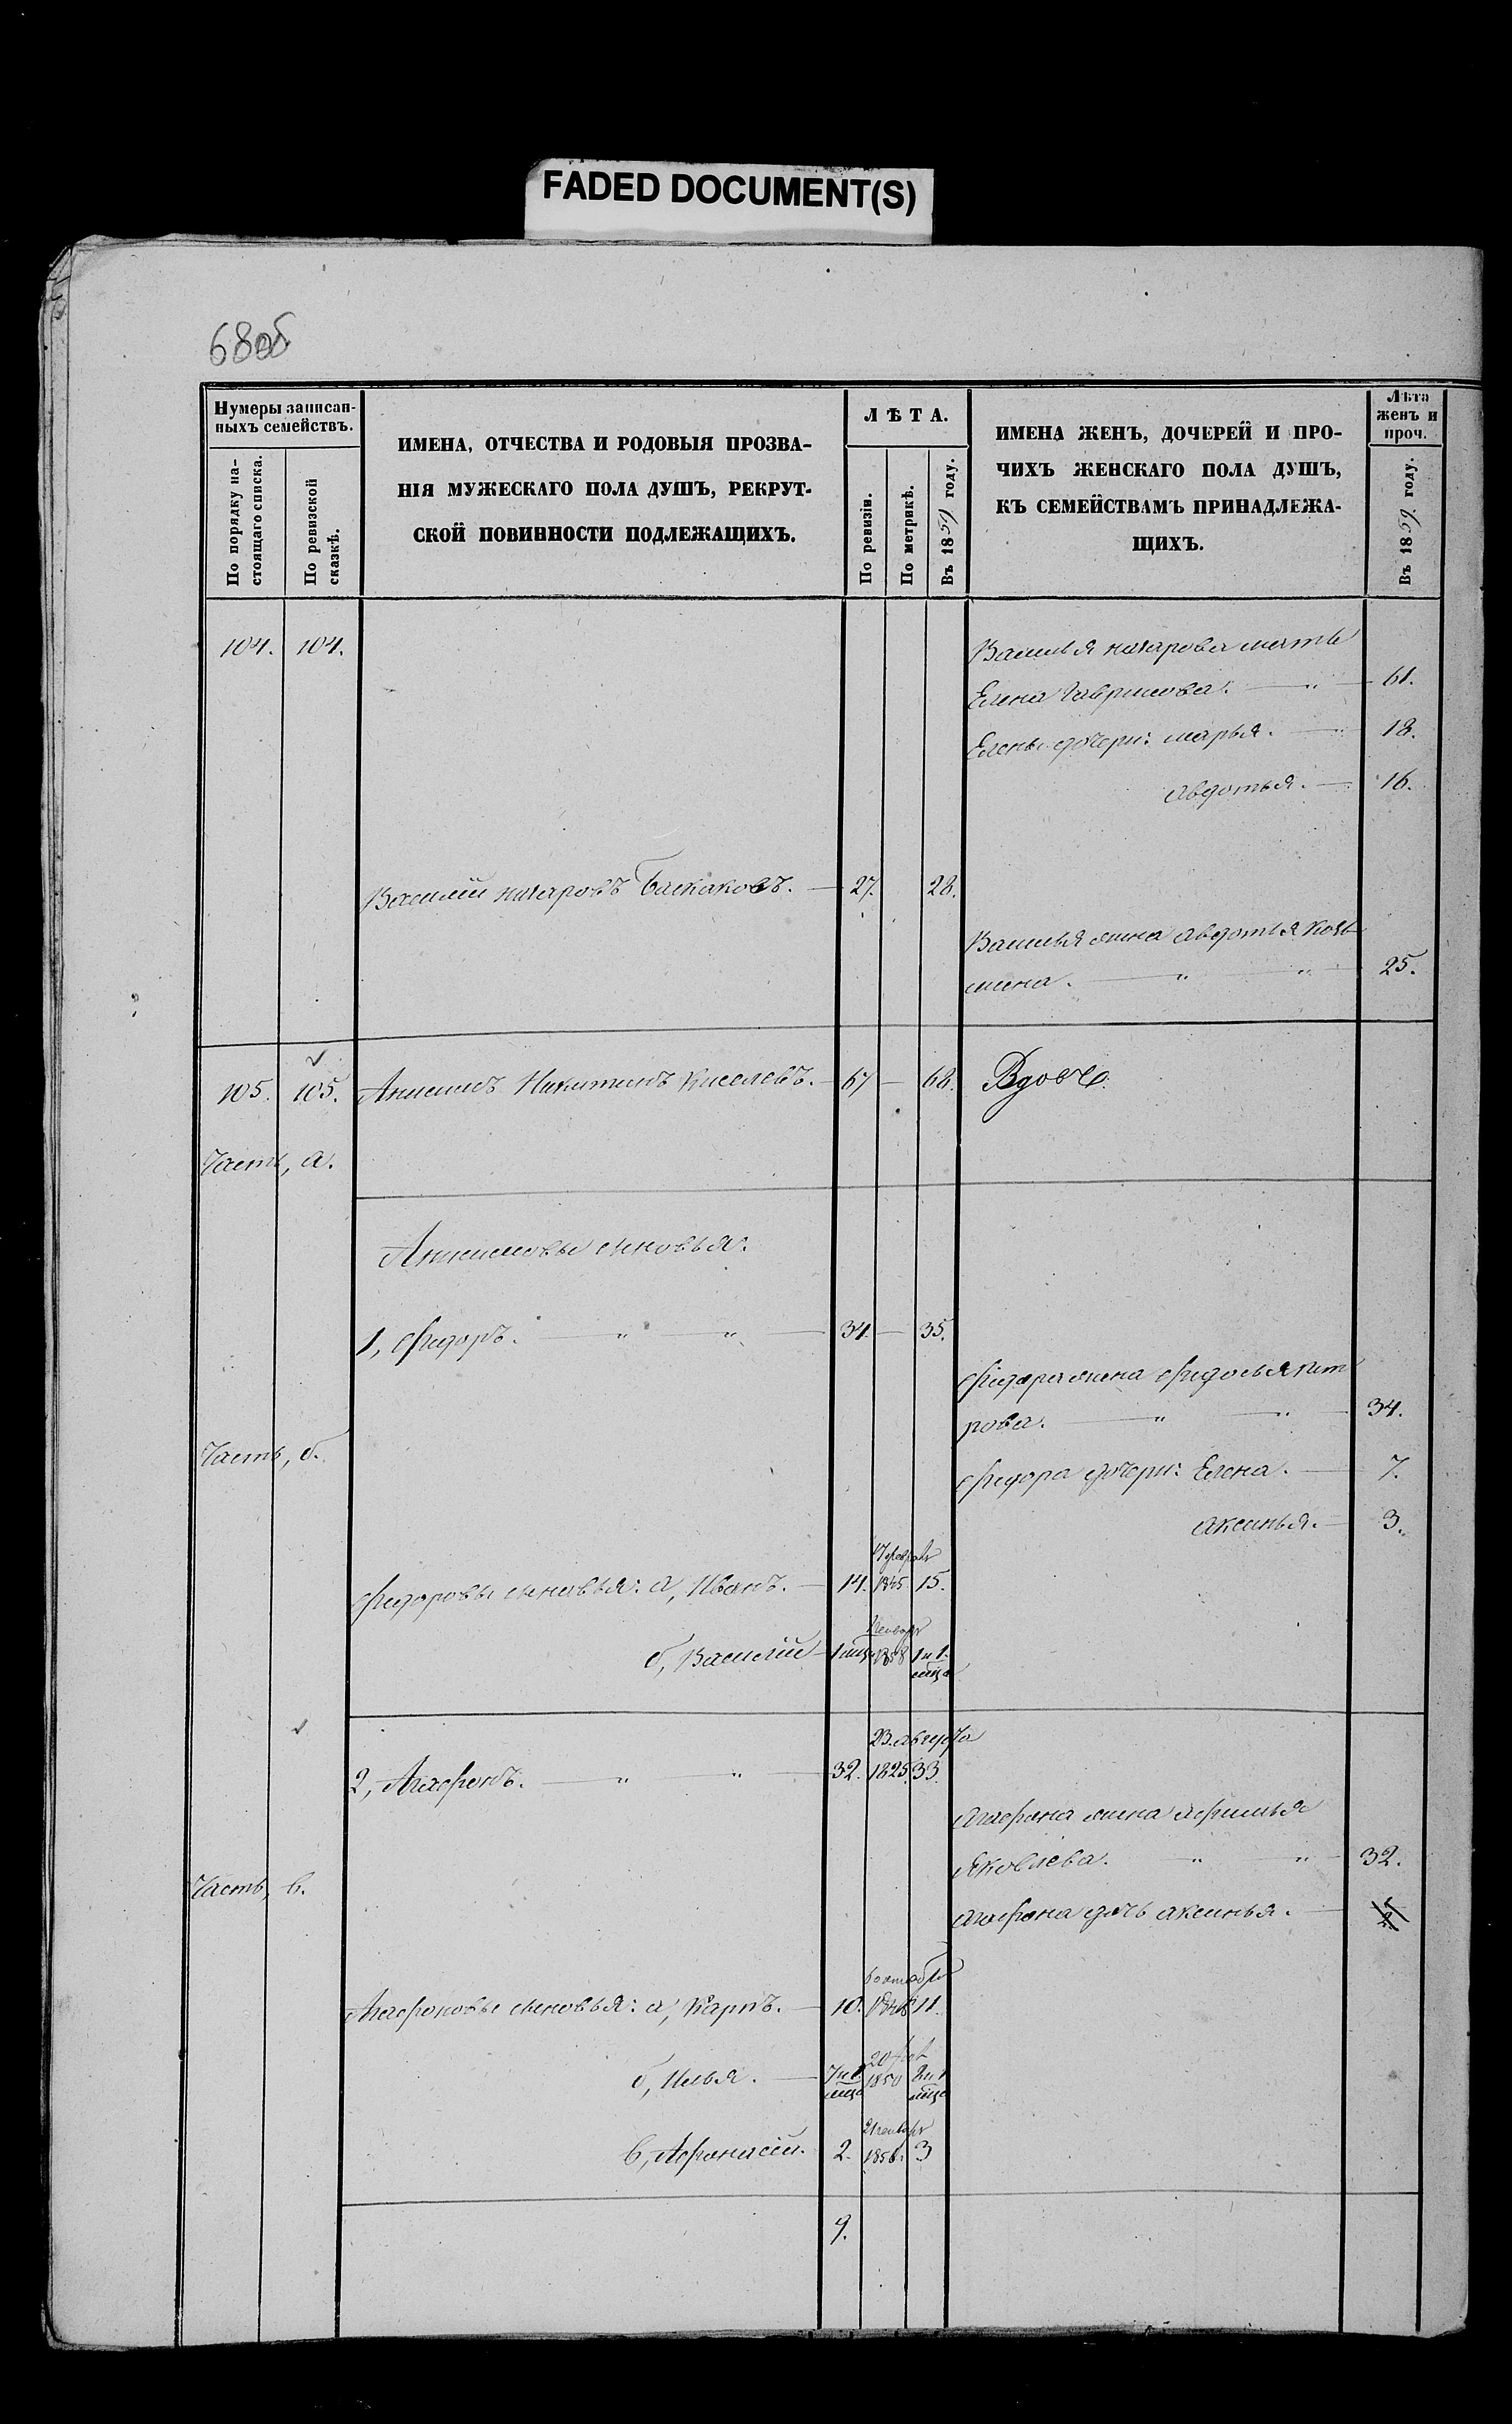 FADED DOCUMENT(S)
68об
Нумеры записан-
ныхъ семействъ.
По порядку на-
стоящаго списка.
По ревизской
сказкѣ.
ИМЕНА, ОТЧЕСТВА И РОДОВЫЯ ПРОЗВА-
НІЯ МУЖЕСКАГО ПОЛА ДУШЪ, РЕКРУТ-
СКОЙ ПОВИННОСТИ ПОДЛЕЖАЩИХЪ.
ЛѢТА.
По ревизіи.
По метрикѣ.
Въ 1859 году.
ИМЕНА ЖЕНЪ, ДОЧЕРЕЙ И ПРО-
ЧИХЪ ЖЕНСКАГО ПОЛА ДУШЪ,
КЪ СЕМЕЙСТВАМЪ ПРИНАДЛЕЖА-
ЩИХЪ.
Лѣта
женъ и
проч.
Въ 1859 году.
104. 104. Василья назарова мать
Елена Гаврилова. — „ — 61.
Елены дочери: марья. — 18.
авдотья. — 16.
Василій назаровъ Баскаковъ. — 27. 28.
Василья жена авдотья козь
мина. — „ — „ — 25.
105. 105. Анисимъ Никитинъ Киселевъ. — 67 — 68. Вдовъ.
Часть, а.
Анисимовы сыновья:
1, Федоръ. — „ — „ — 34. — 35.
Федора жена Федосья пет
рова. — „ — „ — 34.
Часть, б.
Федора дочери: Елена. — 7.
аксинья. — 3.
17 февраля
Федоровы сыновья: а, Иванъ. — 14. 1845 15.
Января
б, Василій — 1 мца 1858 1 и 1.
мца
23. августа
2, Агафонъ. — „ — „ — 32. 1825. 33.
агафона жена афимья
Яковлева. — „ — „ — 32.
Часть, в.
агафона дочь аксинья. —
6 октября
Агафоновы сыновья: а, Карпъ. — 10. 1848 11.
20
б, Илья. — 1850
мца мца
21 января
в, Афанасій. 2. 1856. 3
9.